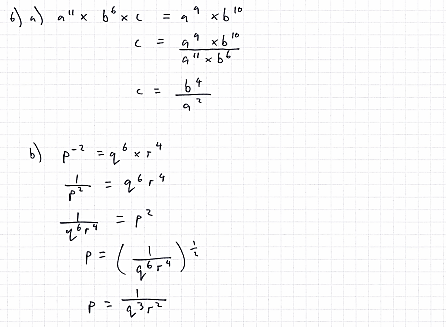 6) a) a¹¹ × b⁶ × c = a⁹ × b¹⁰
c = a⁹ × b¹⁰ / a¹¹ × b⁶
c = b⁴ / a²
b) p⁻² = q⁶ × r⁴
1 / p² = q⁶ r⁴
1 / q⁶ r⁴ = p²
p = ( 1 / q⁶ r⁴ )^½
p = 1 / q³ r²